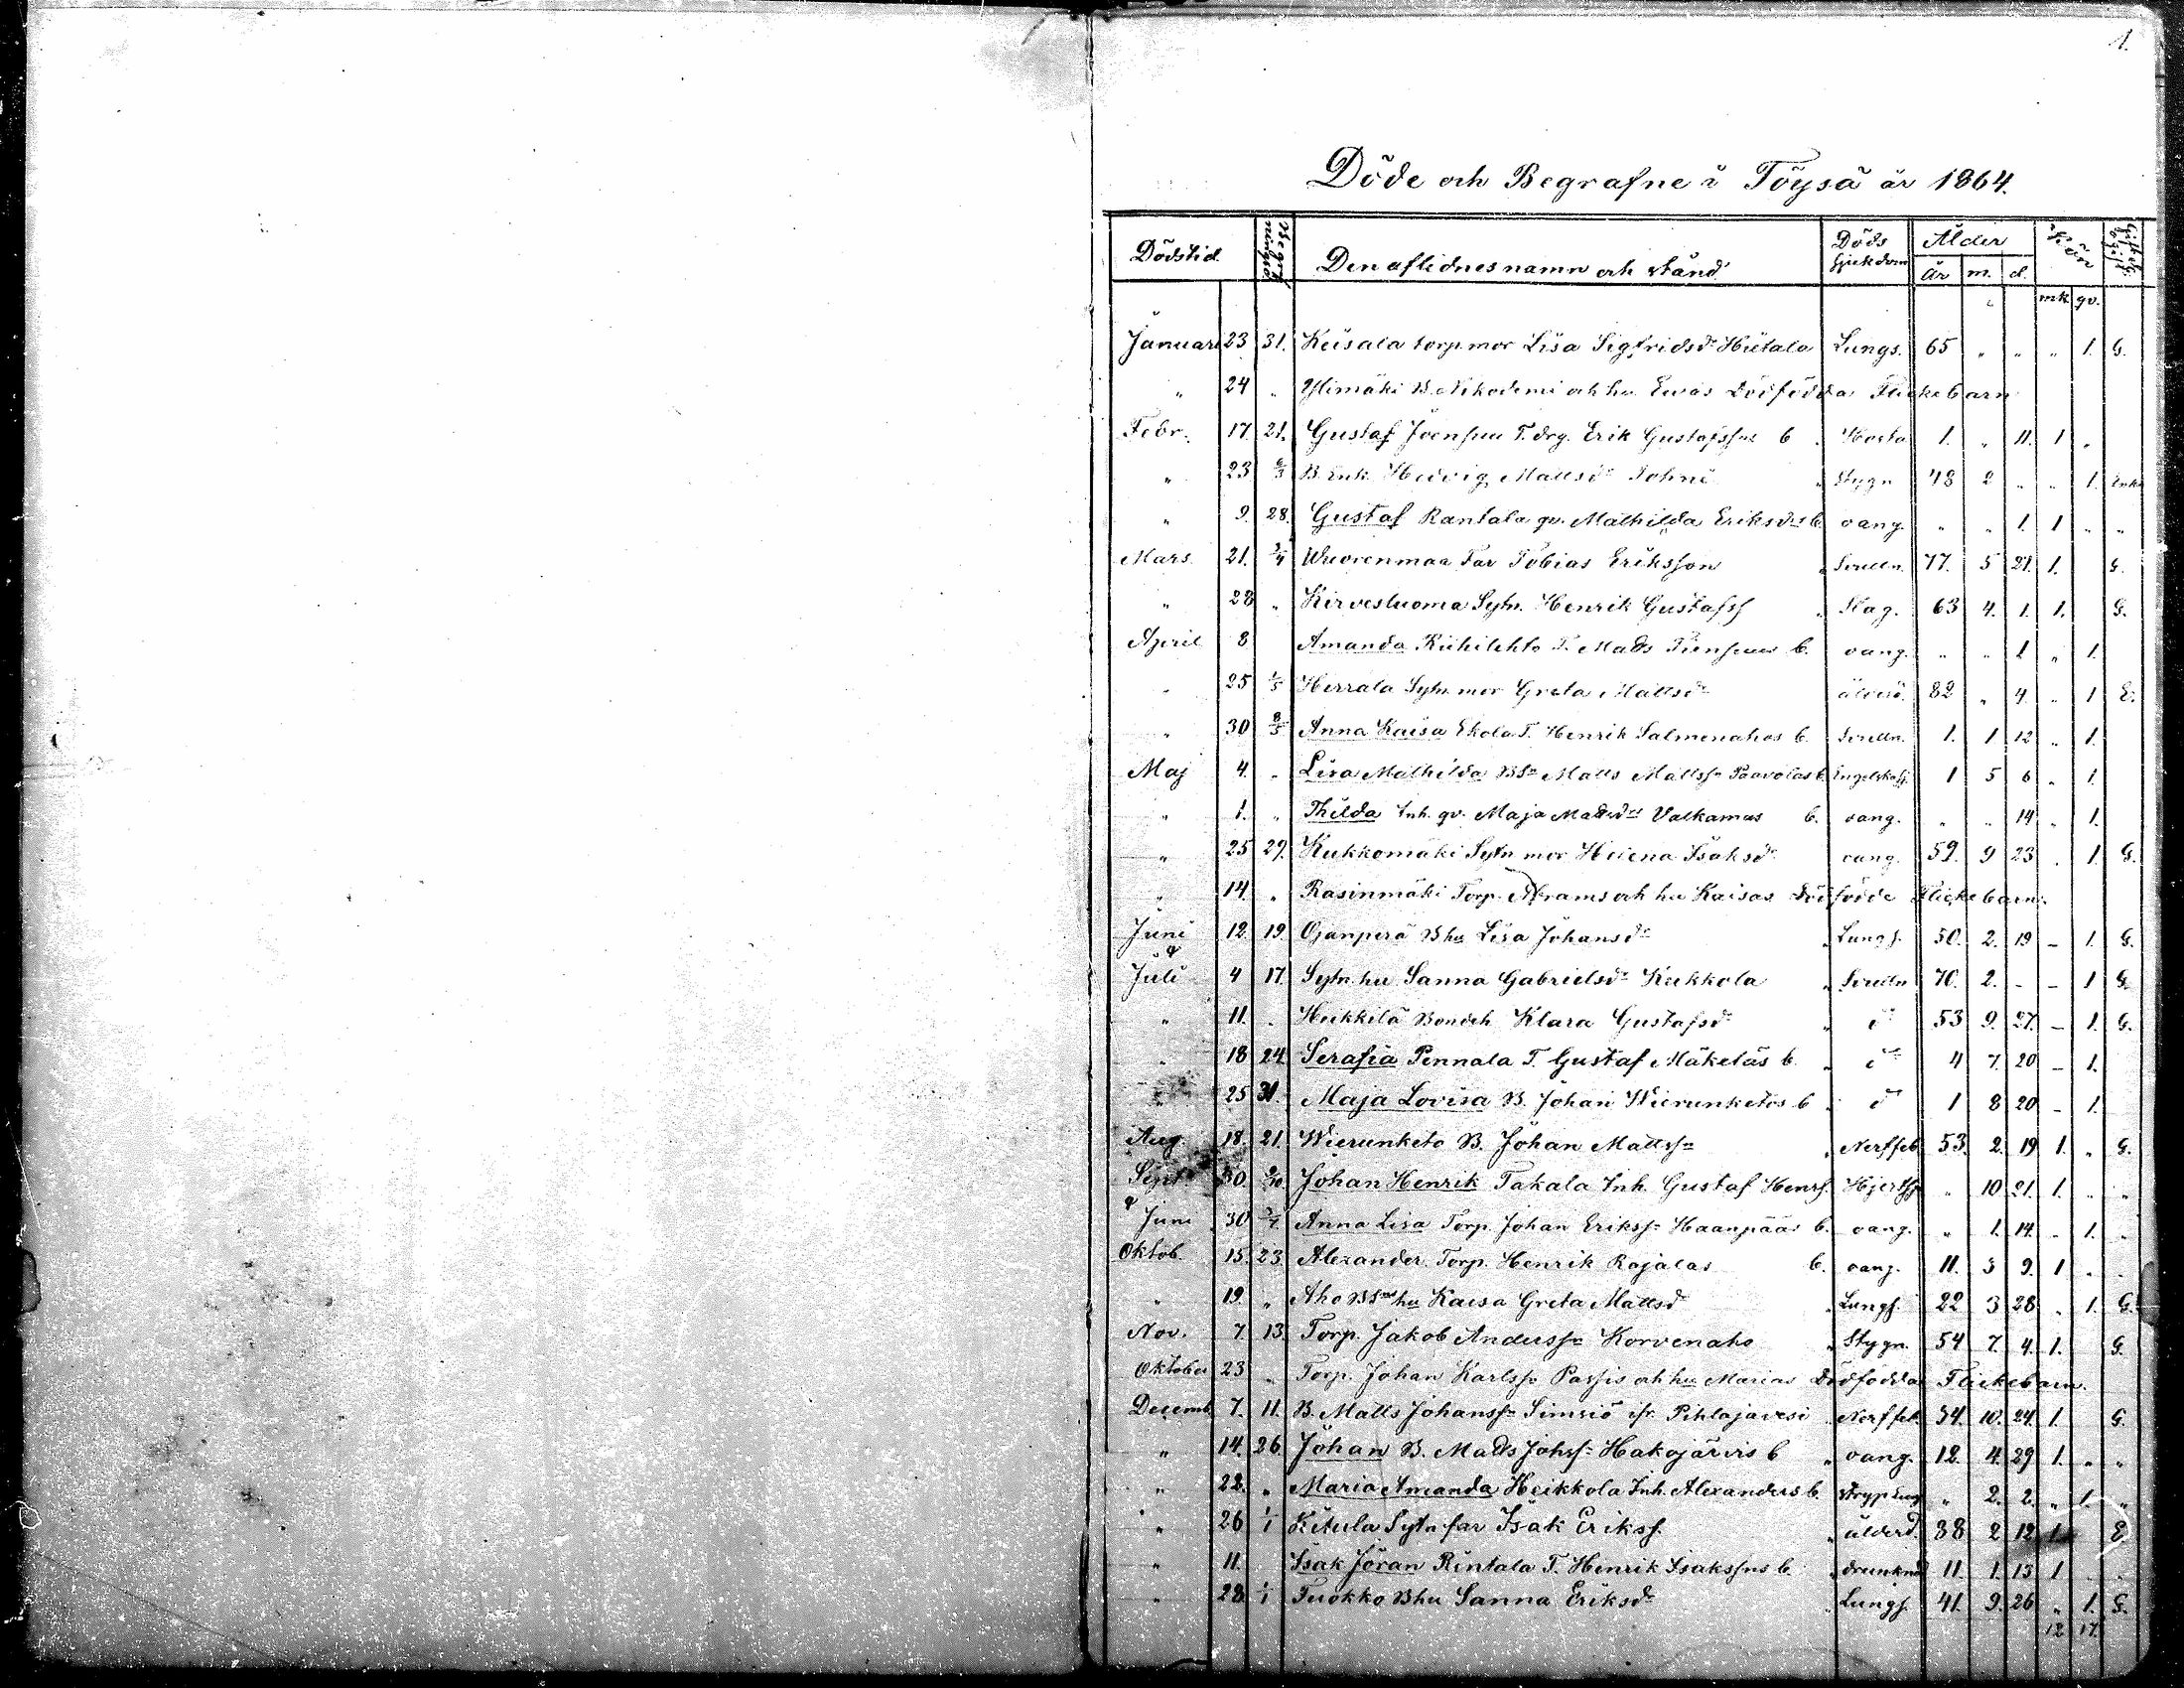 1.
Döde och Begrafne i Töysä år 1864.
Dödstid. Den aflidnes namn och stånd Döds sjukdom Ålder Kön
år m. d. mk. qv.
Januari 23 31. Keisala torp.mor Lisa Sigfridsdr Hietala Lungs. 65 " " " 1. G.
" 24 " Ylimäki B. Nikodemi och hu. Ewas Dödfödda Flickebarn
Febr. 17. 21. Gustaf Joensuu T. drg. Erik Gustafssns b. Hosta 1. " 11. 1 "
" 23 6/3 B. Enk. Hedvig Mattsdr " Stygn 48 2 " " 1. Enka
" 9. 28. Gustaf Rantala qv. Mathilda Eriksdrs b. oang. " " 1. 1 " "
Mars. 21. 3/4 Wuorenmaa Far Tobias Eriksson " 77. 5 21. 1. G.
" 28 " Kirvesluoma Sytn. Henrik Gustafss " Slag. 63 4. 1. 1. G.
April 8 Amanda Riihilehto T. Mads b. oang. " " 1 " 1.
" 25 1/5 Herrala Sytn. mor Greta Mattsdr ålderd. 82 " 4 " 1 E.
" 30 8/5 Anna Kaisa Ekola T. Henrik Salmenahos b. 1. 1 12 " 1.
Maj 4. " Lisa Mathilda BSn Matts Mattssn Paavolas b. Engelska sj. 1 5 6 " 1.
" 1. " Thilda Inh. qv. Maja Madsdrs Valkamas b. oang. " " 14 " 1.
" 25 29. Kukkomäki Sytn mor Helena Isaksdr oang. 59. 9 23 " 1. G.
" 14. " Rasinmäki Torp. Abrams och hu Kaisas dödfödde Flickebarn.
Juni 12. 19. Ojanperä Bhu Lisa Johansdr " Lungs. 50. 2. 19 - 1. G.
Juli 4 17. Sytn. hu Sanna Gabrielsdr Kukkola " 70. 2. - - 1 G.
" 11. " Heikkilä Bondeh. Klara Gustafsdr " do 53 9. 27. - 1. G.
" 18 24. Serafia Pennala T. Gustaf Mäkeläs b. " do 4 7. 20 - 1.
" 25 31. Maja Lovisa B. Johan Wierunketos b. do 1 8 20 - 1.
Aug. 18. 21. Wierunketo B. Johan Mattssn " Nerffeb. 53. 2. 19 1. " G.
Sept. 30. 9/10 Johan Henrik Takala Inh. Gustaf Henrs. " 10 21. 1. " "
Juni 30 3/7 Anna Lisa Torp. Johan Erikssn Haanpääs b. oang. " 1. 14. " 1. "
Oktob. 15. 23 Alexander Torp. Henrik Rajalas b. oang. 11. 3 9. 1 " "
" 19. " Aho BSns hu Kaisa Greta Mattsd " Lungs. 22 3 28 " 1. G.
Nov. 7. 13. Torp. Jakob Anderssn Korvenaho " Stygn. 54 7. 4. 1. G.
Oktober 23 " Torp. Johan Karlssn Passis och hu Marias Dödfödda Flickebarn.
Decemb. 7. 11. B. Matts Johanssn Simsiö ifr. Pihlajavesi Nerffeb. 34. 10. 24. 1. G.
" 14. 26. Johan B. Mads Johssn Hakojärvis b " oang. 12. 4. 29 1. " "
" 22. " Maria Amanda Heikkola Inh. Alexanders b. " 2. 2. " 1. "
" 26 1/1 Kitula Sytn far Isak Erikss. " ålderd. 88 2 12 1. E.
" 11. Isak Jöran Rintala T. Henrik Isakssns b. " drunknad 11. 1. 13 1 " "
" 28. 1/1 Tuokko Bhu Sanna Eriksdr " Lungs. 41. 9. 26 " 1. G.
12 17.